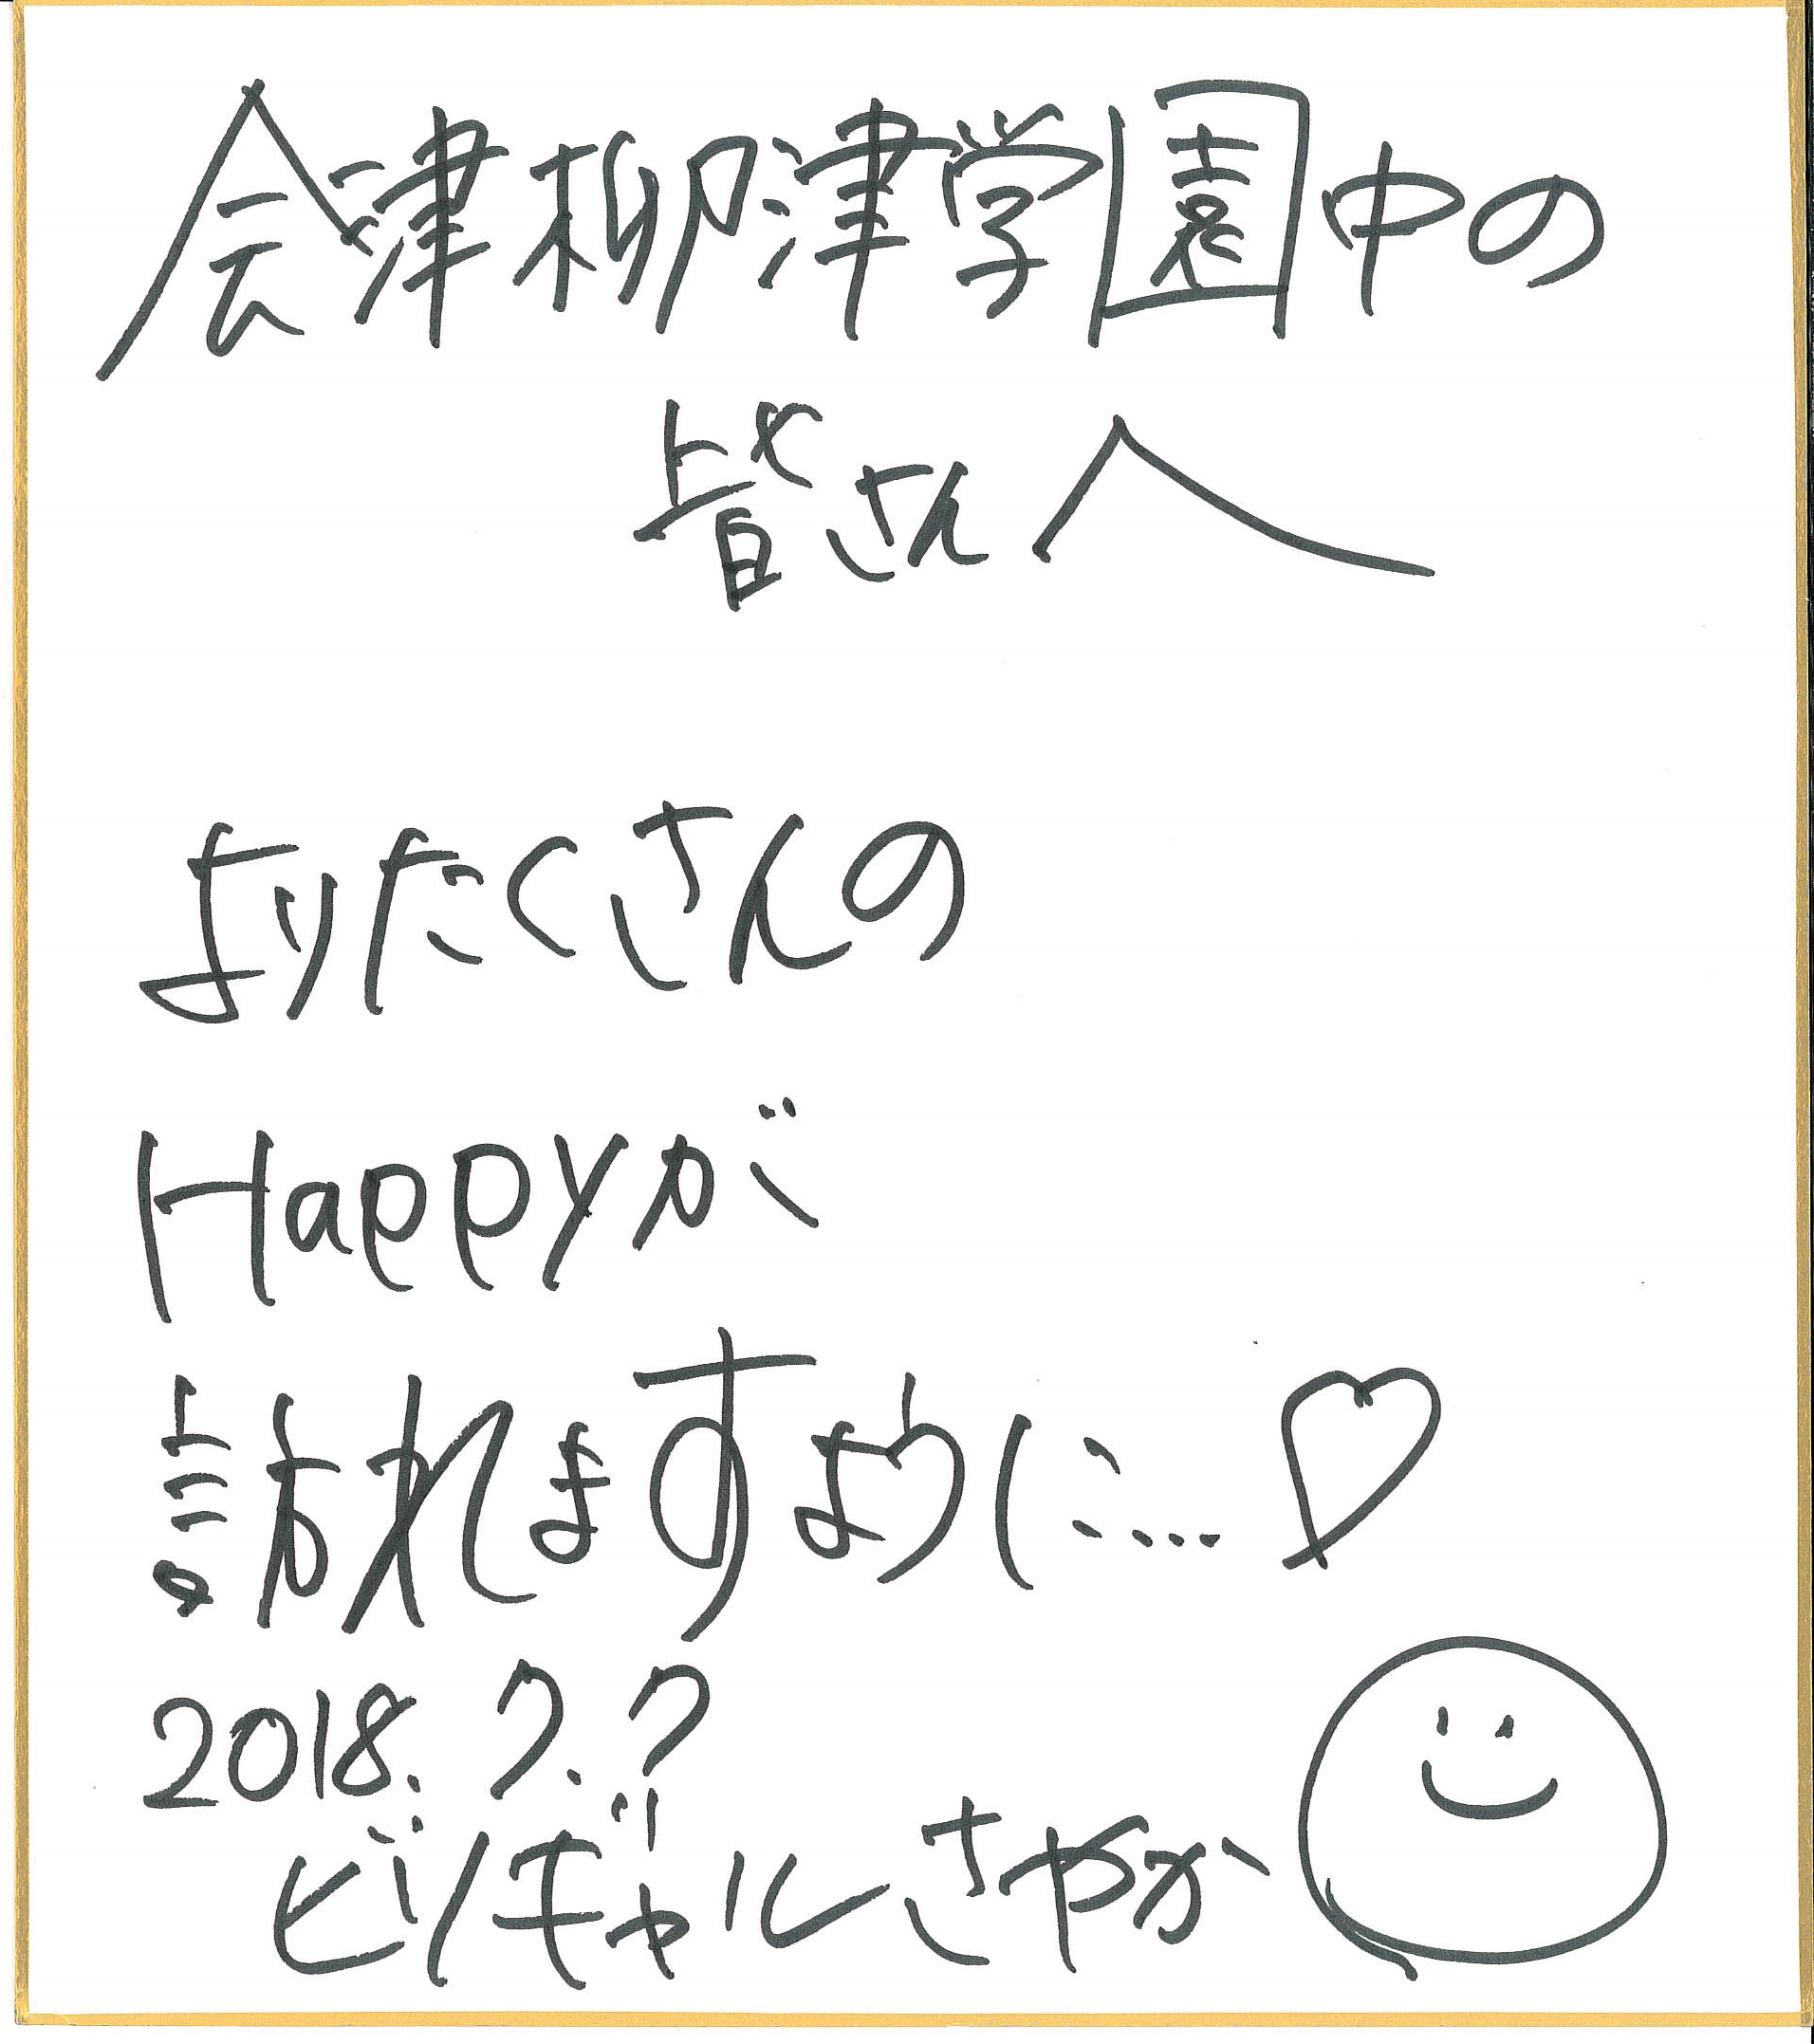 会津柳津学園中の
皆さんへ
よりたくさんの
Happyが
訪れますように…♡
2018.7.7
ビリギャルさやか